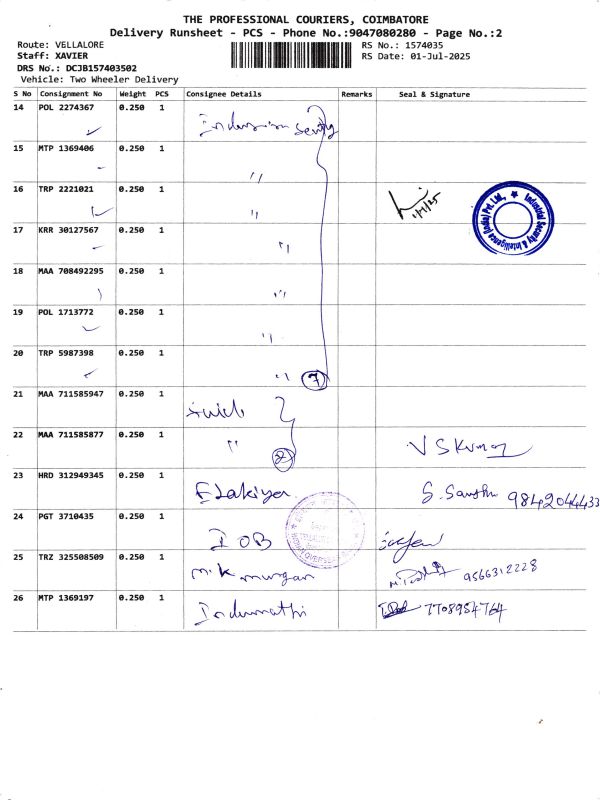 THE PROFESSIONAL COURIERS, COIMBATORE
Delivery Runsheet - PCS - Phone No.:9047080280 - Page No.:2
Route: VELLALORE
Staff: XAVIER
RS No.: 1574035
DRS No.: DCJB157403502
RS Date: 01-Jul-2025
Vehicle: Two Wheeler Delivery
S No Consignment No Weight PCS Consignee Details Remarks Seal & Signature
14 POL 2274367 0.250 1
15 MTP 1369406 0.250 1 ''
16 TRP 2221021 0.250 1 '' 1/7/25
Industrial Security & Intelligence (India) Pvt. Ltd.,
17 KRR 30127567 0.250 1 ''
18 MAA 708492295 0.250 1 ''
19 POL 1713772 0.250 1 ''
20 TRP 5987398 0.250 1 '' 7
21 MAA 711585947 0.250 1
22 MAA 711585877 0.250 1 '' 2 V S Kumar
23 HRD 312949345 0.250 1 Elakiya S. Santhi 9842044433
24 PGT 3710435 0.250 1 IOB
25 TRZ 325508509 0.250 1 M.K murugan 9566312228
26 MTP 1369197 0.250 1 Indumathi 7708954764